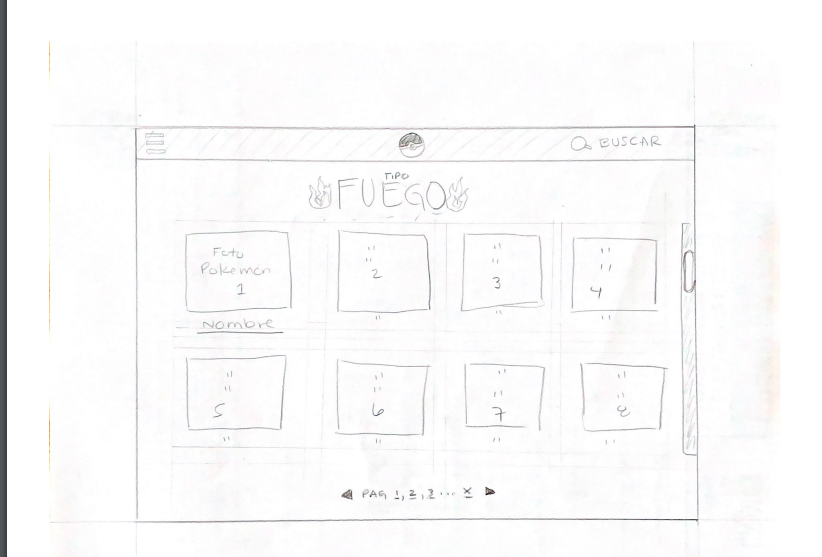 BUSCAR
TIPO
FUEGO
Foto
Pokemon
1
Nombre
"
"
2
"
"
"
3
"
"
"
4
"
"
"
5
"
"
"
6
"
"
"
7
"
"
"
8
"
PAG 1, 2, 3 ... X